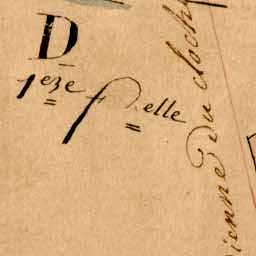 D
1eze P.elle
ienne Du cloch